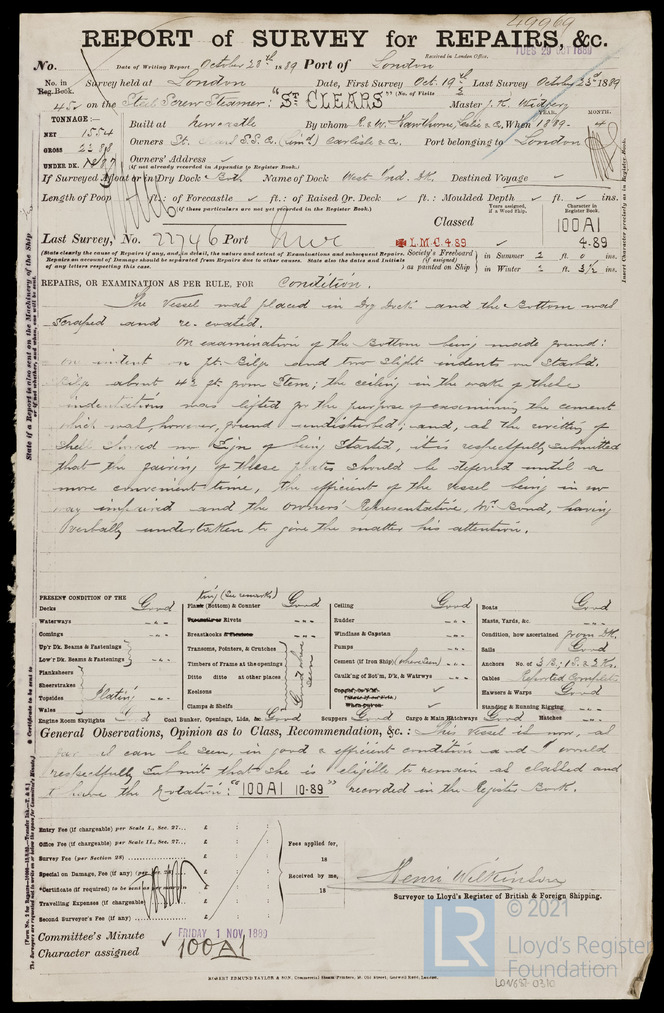 49969
REPORT of SURVEY for REPAIRS, &c.
Received in London Office.
TUES. 29 OCT 1889
No. Date of Writing Report October 28th 1889 Port of London
No. in Reg. Book. Survey held at London Date, First Survey Oct. 19th Last Survey October 23rd 1889
(No. of Visits 2
on the Steel Screw Steamer: "ST CLEARS" Master
TONNAGE:—
YEAR. MONTH.
NET 1554 Built at Newcastle By whom R. & W. Hawthorne, Leslie & Co. When 1889 - 4
GROSS Owners St. S.S. Co. (Limd) Carlisle & Co. Port belonging to London
UNDER DK. Owners' Address ✓
(if not already recorded in Appendix to Register Book.)
If Surveyed Afloat or in Dry Dock Both Name of Dock West Ind. Dk. Destined Voyage ✓
Length of Poop ✓ ft.: of Forecastle ✓ ft.: of Raised Qr. Deck ✓ ft.: Moulded Depth ✓ ft. ✓ ins.
(if these particulars are not yet recorded in the Register Book.)
Years assigned, if a Wood Ship. Character in Register Book.
Classed 100A1
Last Survey, No. 22746 Port Nwc ✠ L.M.C. 4.89 ✓ 4-89
(State clearly the cause of Repairs, if any, and, in detail, the nature and extent of Examinations and subsequent Repairs.
Repairs on account of Damage should be separated from Repairs due to other causes. State also the dates and initials
of any letters respecting this case.
Society's Freeboard (if assigned) as painted on Ship } in Summer 2 ft. 0 ins.
in Winter 2 ft. 3½ ins.
Insert Character precisely as in Register Book.
REPAIRS, OR EXAMINATION AS PER RULE, FOR Condition.
The Vessel was placed in Dry Dock and the Bottom was
scraped and re-coated.
On examination of the Bottom being made found:
an indent on Pt. Bilge and two slight indents on Starbd.
Bilge about 42 ft from Stem; the ceiling in the wake of these
indentations was lifted for the purpose of examining the cement
which was, however, found undisturbed; and, as the rivetting of
Shell showed no sign of being started, it is respectfully submitted
that the fairing of these plates should be deferred until a
more convenient time, the efficient of the Vessel being in no
way impaired and the owners' Representative, Mr. Bond, having
verbally undertaken to give the matter his attention.
PRESENT CONDITION OF THE
Decks Good
Waterways - " -
Comings - " -
Up'r Dk. Beams & Fastenings
Low'r Dk. Beams & Fastenings
Planksheers
Sheerstrakes
Topsides Plating
Wales
King (See remarks)
Plank (Bottom) & Counter Good
Rivets - " -
Breasthooks - " -
Transoms, Pointers, & Crutches
Timbers of Frame at the openings
Ditto ditto at other places
Keelsons
Clamps & Shelfs
Good where seen
Ceiling Good
Rudder - " -
Windlass & Capstan - " -
Pumps - " -
Cement (if Iron Ship) (where seen) - " -
Caulk'g of Bot'm, D'k, & Watwys - " -
Boats Good
Masts, Yards, &c. - " -
Condition, how ascertained from Dk.
Sails Good
Anchors No. of 3 B; 1 S. & 2 K.
Cables Reported Complete
Hawsers & Warps Good
Standing & Running Rigging - " -
Engine Room Skylights Good Coal Bunker, Openings, Lids, &c. Good Scuppers Good Cargo & Main Hatchways Good Hatches - " -
General Observations, Opinion as to Class, Recommendation, &c.: This Vessel is now, as
far as can be seen, in good & efficient condition and I would
respectfully submit that she is eligible to remain as classed and
to have the Notation: "100A1 10-89" recorded in the Register Book.
Entry Fee (if chargeable) per Scale I., Sec. 27... £ : :
Office Fee (if chargeable) per Scale II., Sec. 27... £ : :
Survey Fee (per Section 28) £ : :
Special on Damage, Fee (if any) £ : :
Certificate (if required) £ : :
Travelling Expenses (if chargeable) £ : :
Second Surveyor's Fee (if any) £ : :
Fees applied for,
18
Received by me,
18
Henri Wilkinson
Surveyor to Lloyd's Register of British & Foreign Shipping.
Committee's Minute FRIDAY 1 NOV. 1889
Character assigned 100A1
ROBERT EDMUND TAYLOR & SON, Commercial Steam Printers, 19, Old Street, Goswell Road, London.
State if a Report is also sent on the Machinery of the Ship
LR
© 2021
Lloyd's Register
Foundation
LON687-0310